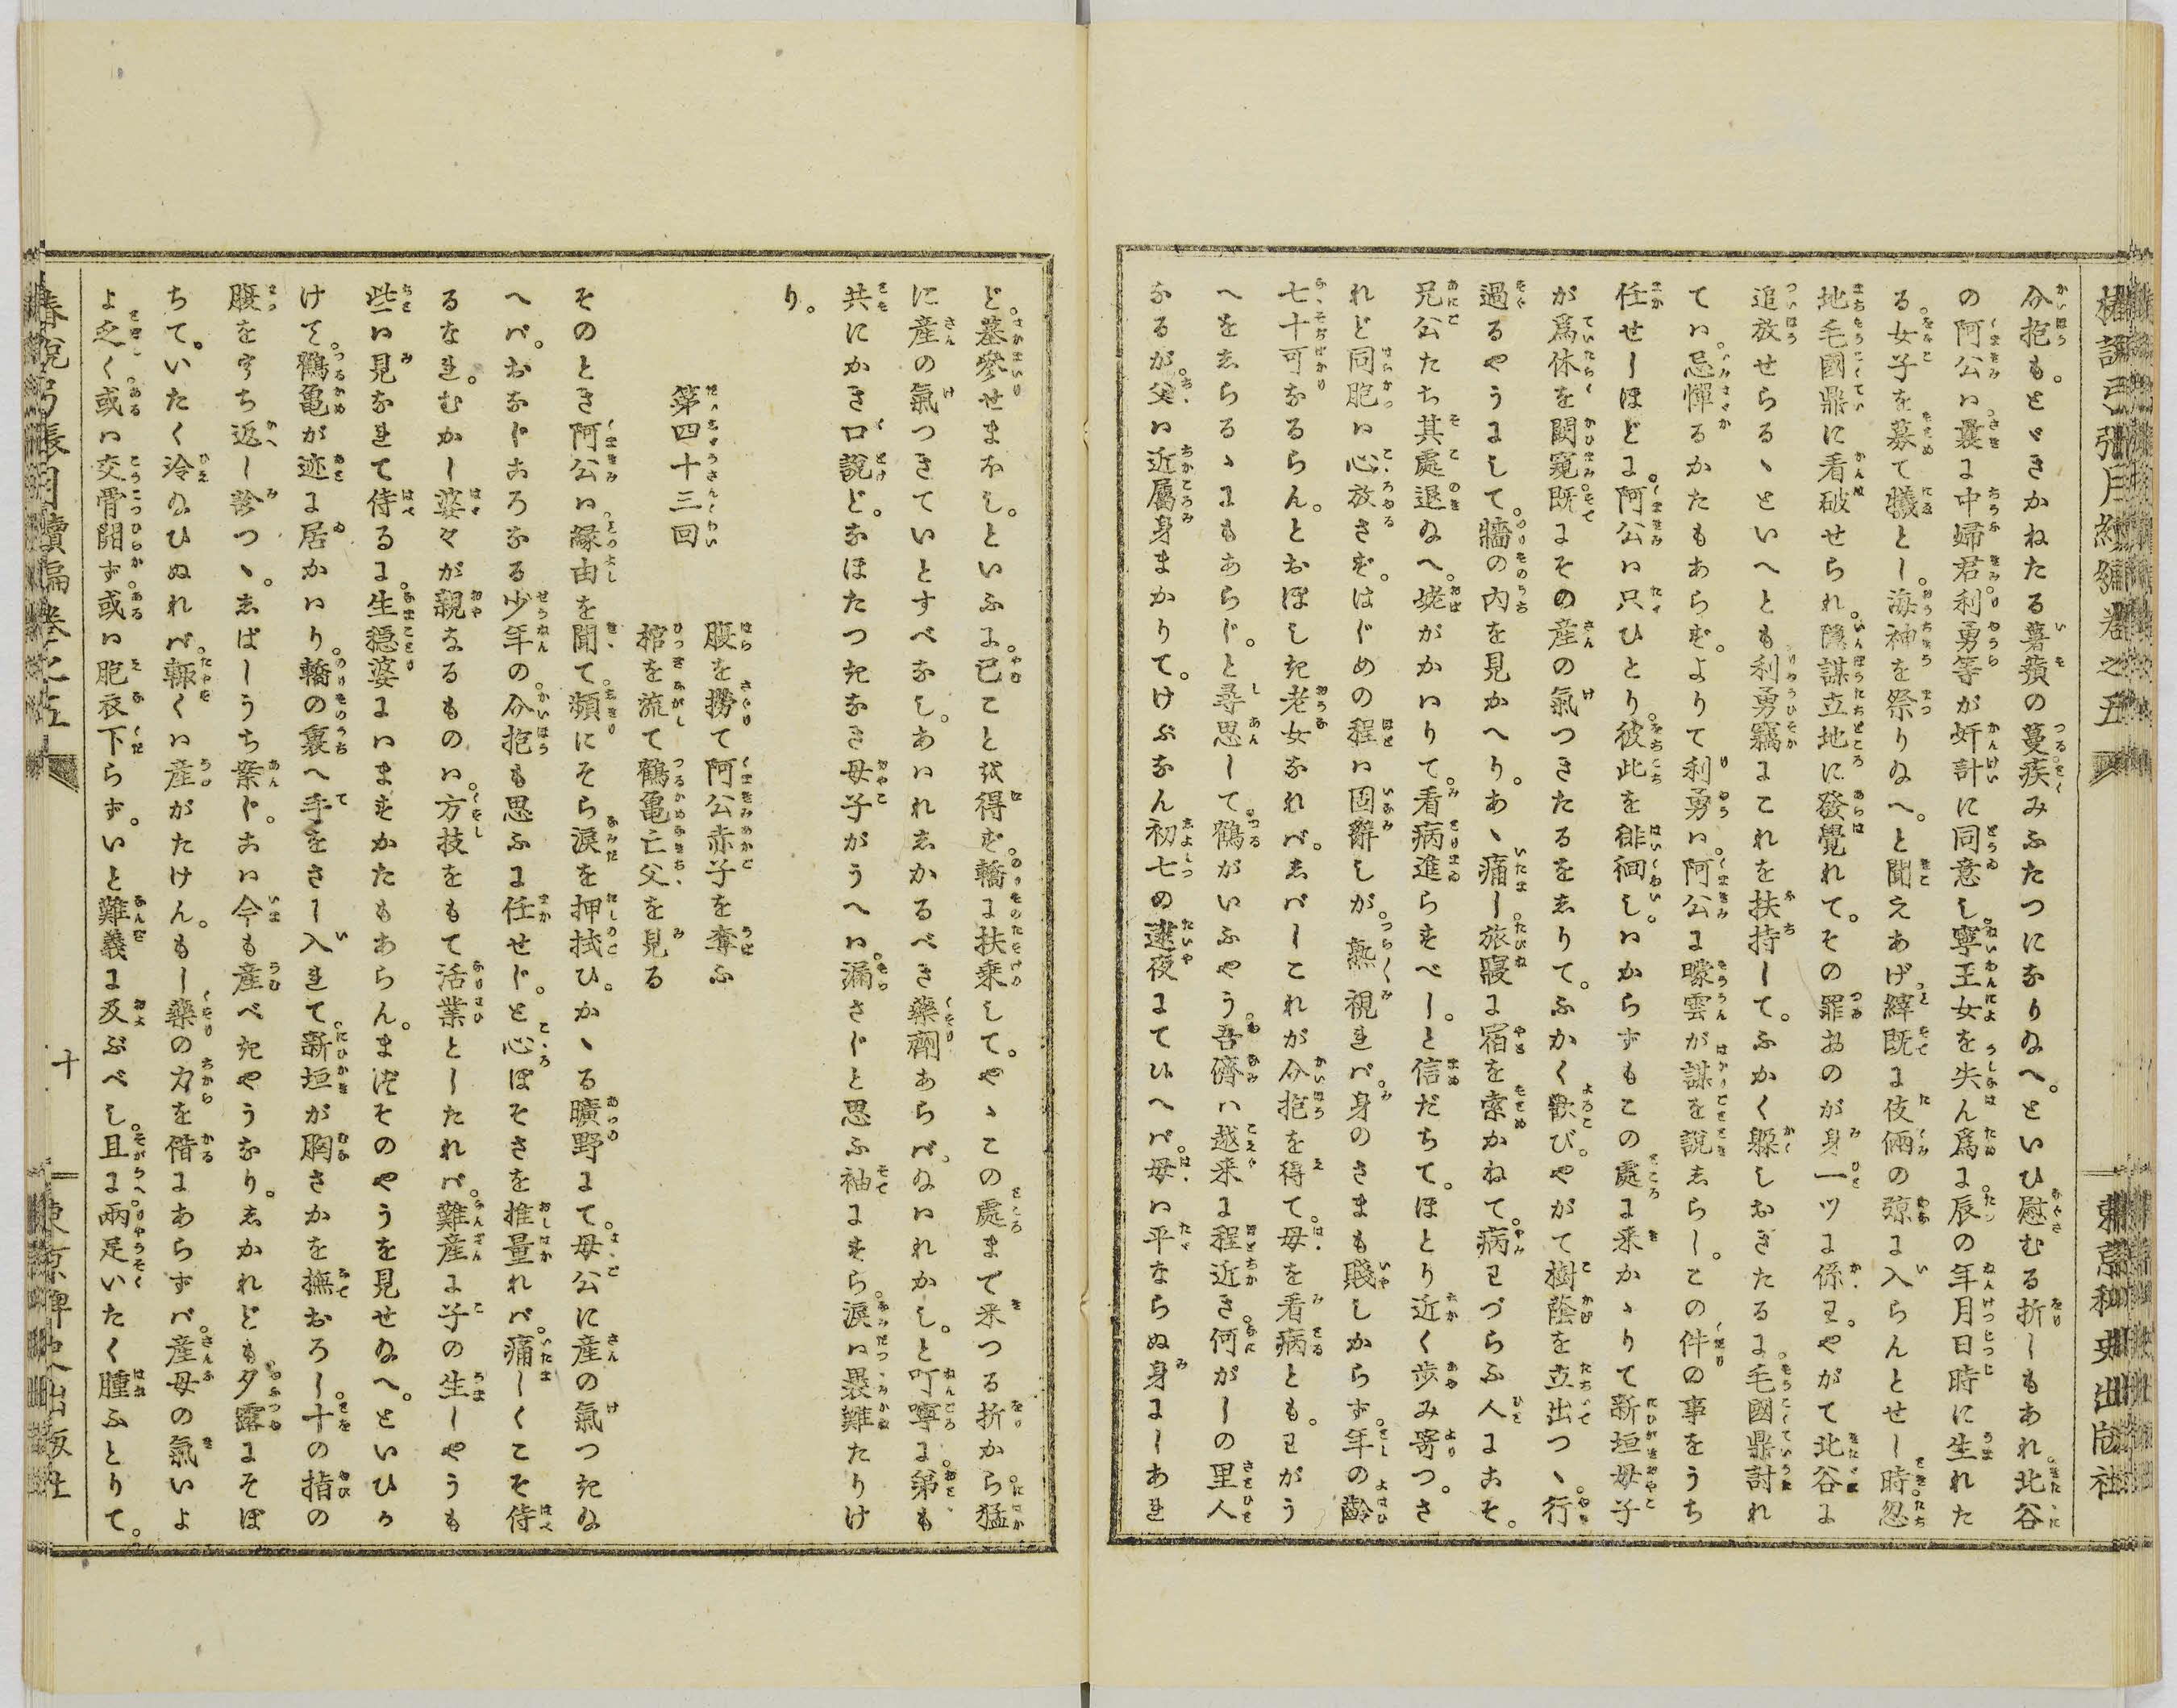 椿説弓張月續編卷之五
東京稗史出版社
介抱も。とゞきかねたる薯蕷の蔓疾みふたつになりねへ。といひ慰むる折しもあれ。北谷
の阿公ハ曩に中婦君。利勇等が奸計に同意し。寧王女を失ん為に。辰の年月日時に生れた
る。女子を募て犠とし。海神を祭りねへ。と聞えあげ。縡既に伎倆の彀に入らんとせし時。忽
地毛國鼎に看破せられ。隠謀立地に發覺れて。その罪おのが身一ツに係り。やがて北谷に
追放せらるゝといへとも利勇竊にこれを扶持して。ふかく躱しおきたるに。毛國鼎討れ
てハ。忌憚るかたもあらず。よりて利勇ハ。阿公に曚雲が謀を説しらし。この件の事をうち
任せしほどに。阿公ハ只ひとり。彼此を徘徊し。ハからずもこの處に来かゝりて新垣母子
が為体を闕窺。既にその産の氣つきたるをしりて。ふかく歡び。やがて樹蔭を立出つゝ。行
過るやうにして。轎の内を見かへり。あゝ痛し。旅寢に宿を索かねて。病わづらふ人にこそ。
兄公たち其處退ねへ。姥がかハりて。看病進らすべし。と信だちて。ほとり近く歩み寄つ。さ
れど同胞ハ心放さず。はじめの程ハ固辭しが。熟視れバ。身のさまも賤しからず。年の齡
七十可なるらん。とおぼしき老女なれバ。しバしこれが介抱を得て。母を看病とも。わがう
へをしらるゝにもあらじ。と尋思して。鶴がいふやう。吾儕ハ越来に程近き。何がしの里人
なるが。父ハ近屬身まかりて。けふなん初七の逮夜にてハへバ。母ハ平ならぬ身にしあれ
ど。墓參せまほし。といふに。已こと𛂞得ず。轎に扶乗して。やゝこの處まで来つる折から。猛
に産の氣つきていとすべなし。あハれしかるべき藥劑あらバ。ねハれかし。と叮嚀に。弟も
共にかき口説ど。なほたつきなき母子がうへハ。漏さじと思ふ袖にすら。涙ハ畏難たりけ
り。
第四十三回
腹を撈て阿公赤子を奪ふ
棺を流て鶴亀亡父を見る
そのとき阿公ハ。縁由を聞て。頻にそら涙を押拭ひ。かゝる曠野にて。母公に産の氣つきね
へバ。おなじころなる少年の。介抱も思ふに任せじ。と心ぼそさを推量れバ。痛しくこそ侍
るなれ。むかし婆々が親なるものハ。方技をもて活業としたれバ。難産に子の生しやうも
些ハ見なれて侍るに。生穏婆にハますかたもあらん。まづそのやうを見せねへ。といひか
けて。鶴亀が迹に居かハり。轎の裏へ手をさし入れて。新垣が胸さかを撫おろし。十の指の
腹をうち返し診つゝ。しばしうち案じ。こハ今も産べきやうなり。しかれども夕露にそぼ
ちて。いたく冷ねひぬれバ。輙くハ産がたけん。もし藥の力を借るにあらずバ。産母の氣いよ
よ乏く。或ハ交骨開ず。或ハ胞衣下らず。いと難義に及ぶべし。且に。兩足いたく腫ふとりて。
椿説弓張月續編卷之五
十
東京稗史出版社